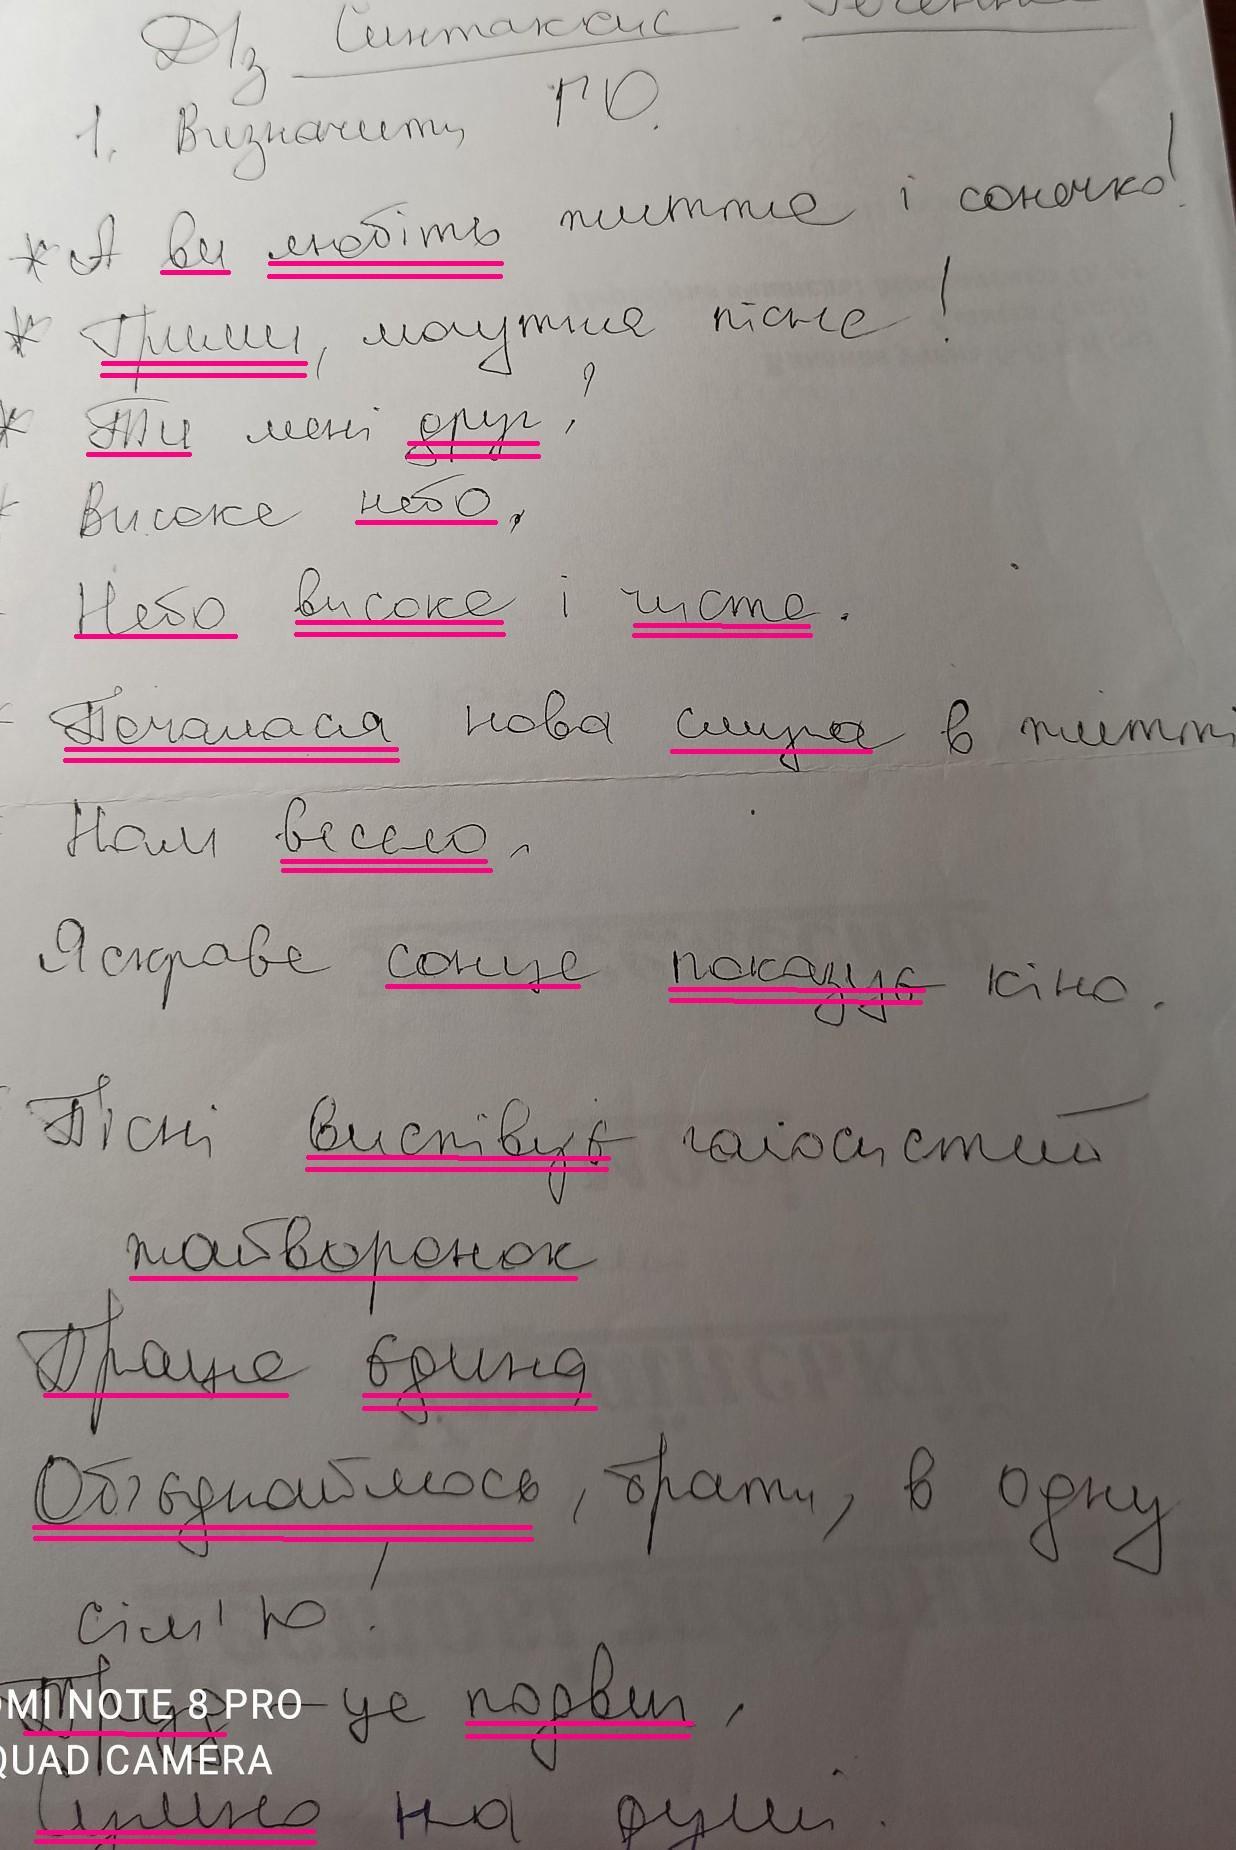 Д/з Синтаксис. Речення
1. Визначити ГО.
* А ви любіть життя і сонечко!
* Грими, могутня пісне!
* Ти мені друг?
* Високе небо.
Небо високе і чисте.
Почалася нова смуга в житті
Нам весело.
Яскраве сонце показує кіно.
Пісні виспівує голосистий
жайворонок
Праця єдина
Об'єднаймось, брати, в одну
сім'ю!
Труд - це подвиг.
Сумно на душі.
REDMI NOTE 8 PRO
QUAD CAMERA